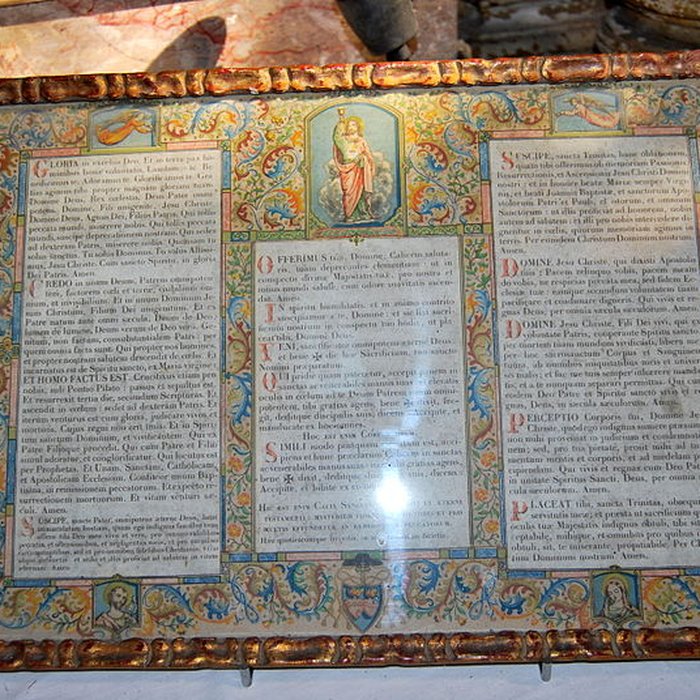 GLORIA in excelsis Deo. Et in terra pax ho-
minibus bonæ voluntatis. Laudamus te. Be-
nedicimus te. Adoramus te. Glorificamus te. Gra-
tias agimus tibi, propter magnam gloriam tuam.
Domine Deus, Rex cœlestis, Deus Pater omni-
potens. Domine, Fili unigenite, Jesu Christe.
Domine Deus, Agnus Dei, Filius Patris. Qui tollis
peccata mundi, miserere nobis. Qui tollis peccata
mundi, suscipe deprecationem nostram. Qui sedes
ad dexteram Patris, miserere nobis. Quoniam tu
solus sanctus. Tu solus Dominus. Tu solus Altissi-
mus, Jesu Christe. Cum sancto Spiritu, in gloria
Dei Patris. Amen.
CREDO in unum Deum, Patrem omnipoten-
tem, factorem cœli et terræ, visibilium om-
nium, et invisibilium. Et in unum Dominum Je-
sum Christum, Filium Dei unigenitum. Et ex
Patre natum ante omnia sæcula. Deum de Deo,
lumen de lumine, Deum verum de Deo vero. Ge-
nitum, non factum, consubstantialem Patri: per
quem omnia facta sunt. Qui propter nos homines,
et propter nostram salutem descendit de cœlis. Et
incarnatus est de Spiritu sancto, ex Maria virgine
ET HOMO FACTUS EST. Crucifixus etiam pro
nobis; sub Pontio Pilato: passus et sepultus est.
Et resurrexit tertia die, secundum Scripturas. Et
ascendit in cœlum: sedet ad dexteram Patris. Et
iterum venturus est cum gloria, judicare vivos et
mortuos. Cujus regni non erit finis. Et in Spiri-
tum sanctum Dominum, et vivificantem: Qui ex
Patre Filioque procedit. Qui cum Patre et Filio
simul adoratur, et conglorificatur: Qui locutus est
per Prophetas. Et Unam, Sanctam, Catholicam,
et Apostolicam Ecclesiam. Confiteor unum Bap-
tisma, in remissionem peccatorum. Et expecto re-
surrectionem mortuorum. Et vitam venturi sæ-
culi. Amen.
SUSCIPE, sancte Pater, omnipotens æterne Deus, hanc
immaculatam hostiam, quam ego indignus famulus tuus
offero tibi Deo meo vivo et vero, pro innumerabilibus
peccatis
OFFERIMUS tibi, Domine, Calicem saluta-
ris, tuam deprecantes clementiam: ut in
conspectu divinæ Majestatis tuæ, pro nostra et
totius mundi salute, cum odore suavitatis ascen-
dat. Amen.
IN spiritu humilitatis, et in animo contrito
suscipiamur a te, Domine: et sic fiat sacri-
ficium nostrum in conspectu tuo hodie, ut pla-
ceat tibi, Domine Deus.
VENI, sanctificator omnipotens æterne Deus
et bene ✠ dic hoc Sacrificium, tuo sancto
Nomini præparatum.
QUI pridie quam pateretur, accepit panem in
sanctas ac venerabiles manus suas: et elevatis
oculis in cœlum ad te Deum Patrem suum omni-
potentem, tibi gratias agens, bene ✠ dixit, fre-
git, deditque discipulis suis, dicens: Accipite, et
manducate ex hoc omnes.
SIMILI modo postquam
Accipite, et bibite ex eo
SUSCIPE, sancta Trinitas, hanc oblationem,
quam tibi offerimus ob memoriam Passionis,
Resurrectionis, et Ascensionis Jesu Christi Domini
nostri: et in honore beatæ Mariæ semper Virgi-
nis, et beati Joannis Baptistæ, et sanctorum Apos-
tolorum Petri et Pauli, et istorum, et omnium
Sanctorum: ut illis proficiat ad honorem, nobis
autem ad salutem: et illi pro nobis intercedere di-
gnentur in cœlis, quorum memoriam agimus in
terris. Per eumdem Christum Dominum nostrum.
Amen.
DOMINE Jesu Christe, qui dixisti Apostolis
tuis: Pacem relinquo vobis, pacem meam
do vobis, ne respicias peccata mea, sed fidem Ec-
clesiæ tuæ: eamque secundum voluntatem tuam
pacificare et coadunare digneris. Qui vivis et regnas
Deus, per omnia sæcula sæculorum. Amen.
DOMINE Jesu Christe, Fili Dei vivi, qui ex
voluntate Patris, cooperante Spiritu sancto,
per mortem tuam mundum vivificasti, libera me
per hoc sacrosanctum Corpus et Sanguinem
tuum, ab omnibus iniquitatibus meis et univer-
sis malis; et fac me tuis semper inhærere manda-
tis; et a te numquam separari permittas. Qui cum
eodem Deo Patre et Spiritu sancto vivis et re-
gnas, Deus, in sæcula sæculorum. Amen.
PERCEPTIO Corporis tui, Domine Jesu
Christe, quod ego indignus sumere præsumo,
non mihi proveniat in judicium et condemnatio-
nem; sed, pro tua pietate, prosit mihi ad tuta-
mentum mentis et corporis, et ad medelam per-
cipiendam. Qui vivis et regnas cum Deo Patre in
unitate Spiritus Sancti, Deus, per omnia sæ-
cula sæculorum. Amen.
PLACEAT tibi, sancta Trinitas, obsequium
servitutis meæ; et præsta ut sacrificium quod
oculis tuæ Majestatis indignus obtuli, tibi sit ac-
ceptabile, mihique, et omnibus pro quibus illud
obtuli, sit, te miserante, propitiabile. Per Chris-
tum Dominum nostrum. Amen.